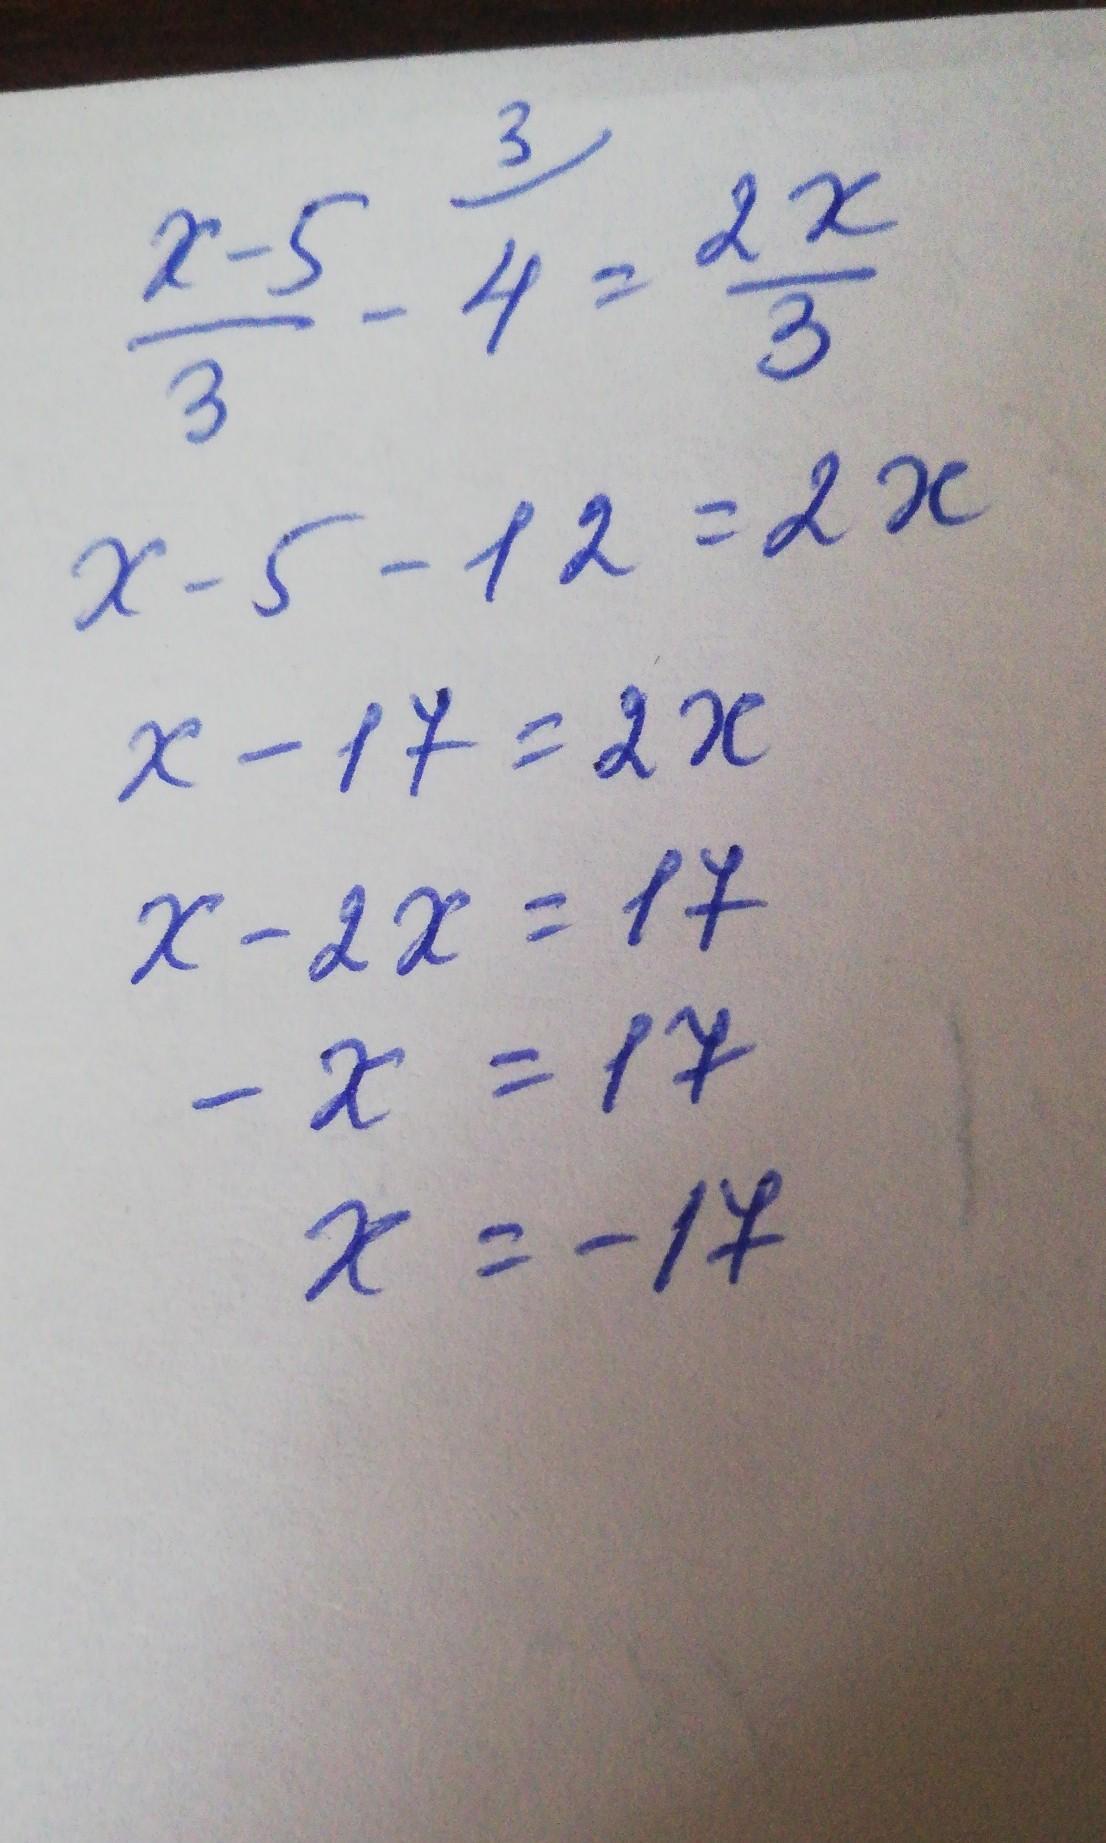 3
x-5/3 - 4 = 2x/3
x - 5 - 12 = 2x
x - 17 = 2x
x - 2x = 17
- x = 17
x = -17